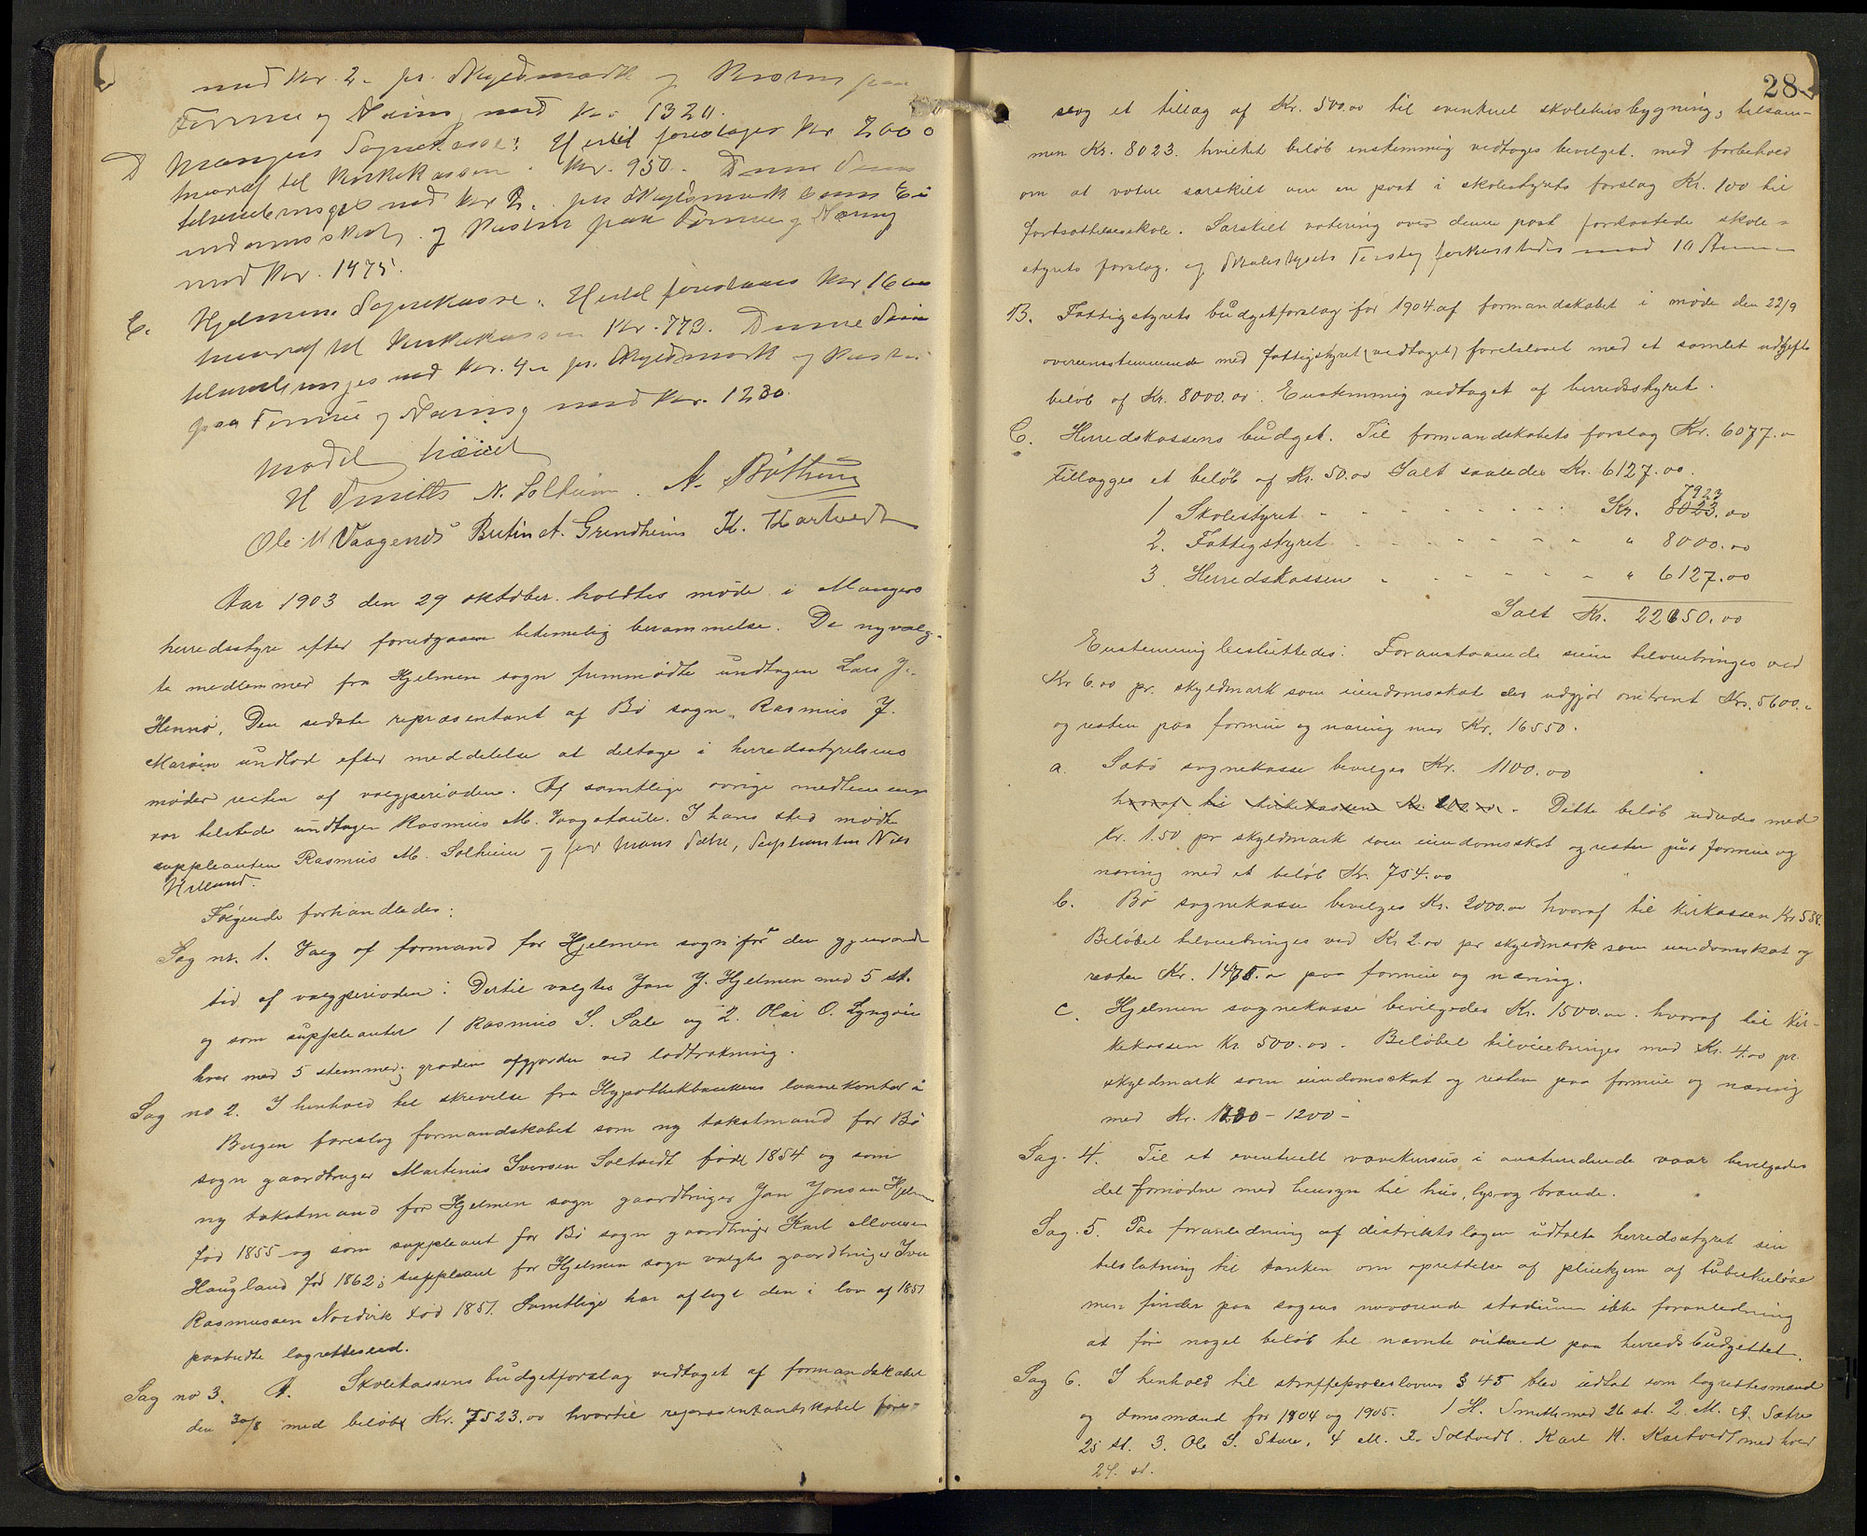 med Kr. 2.- pr. Skyldmark og Resten paa
Formue og Næring med Kr. 1320.
D Mangers Sognekasse: Hertil foreslages Kr 2000
hvoraf til Kirkekassen Kr. 950. Denne Sum
tilveiebringes med Kr 2.- pr. Skyldmark som Ei
endomsskat og Resten paa Formue og Næring
med Kr. 1475.
E. Hjelmens Sognekasse. Hertil foreslaaes Kr 1600
hvoraf til Kirkekassen Kr. 773. Denne Sum
tilveiebringes med Kr. 4.- pr. Skyldmark og Resten
paa Formue og Næring med Kr. 1230.
Mødet hævet
H Smith N. Solheim. A. Bøthun
Ole M Vaagenes Betin A. Grendheim K. Kartveit
Aar 1903 den 29 oktober holdtes møde i Mangers
herredsstyre efter foregaaen betimelig berammelse. De nyvalg-
te medlemmer fra Hjelmen sogn fremmødte undtagen Lars J.
Hennø. Den sidste repræsentant af Bø sogn, Rasmus J.
Marøin undlod efter meddelelse at deltage i herredsstyrelsens
møder resten af valgperioden. Af samtlige øvrige medlemmer
var tilstede undtagen Rasmus M. Vaagstaule. I hans sted mødte
suppleanten Rasmus M. Solheim og for Mons Sætre, Suplianten Nils
Helland.
Følgende forhandledes:
Sag nr. 1. Valg af formand for Hjelmen sogn for den gjenværende
tid af valgperioden: Dertil valgtes Jan J. Hjelmen med 5 st.
og som suppleanter 1 Rasmus S. Sale og 2. Olai O. Lyngøin
hver med 5 stemmer; graden afgjordes ved lodtrækning.
Sag no 2. I henhold til skrivelse fra Hypothekbankens laanekontor i
Bergen foreslog formandskabet som ny takstmand for Bø
sogn gaardbruger Martinus Iversen Soltvedt født 1854 og som
ny takstmand for Hjelmen sogn gaardbruger Jan Jonsen Hjelmen
fød 1855 og som suppleant for Bø sogn gaardbruger Karl Monsen
Haugland fød 1862; suppleant for Hjelmen sogn valgtes gaardbruger Iver
Rasmussen Nordvik fød 1851. Samtlige har aflagt den i lov af 1851
paabudte lagrettesed.
Sag no 3. A. Skolekassens budgetforslag vedtaget af formandskabet
den 30/8 med beløbet Kr. 7523.00 hvortil repræsentantskabet fore-
28
slog et tillæg af Kr. 500.00 til eventuel skolehusbygning, tilsam-
men Kr. 8023. hvilket beløb enstemmig vedtoges bevilget. med forbehold
om at votere særskilt over en post i skolestyrets forslag Kr. 100 til
fortsættelsesskole. Særskilt votering over denne post forkastede skole-
styrets forslag. og Skolestyrets Forslag forkastedes med 10 Stemmer
B. Fattigstyrets budgetforslag for 1904 af formandskabet i møde den 22/9
overensstemmende med fattigstyret (vedtaget) foreslaaet med et samlet udgifts
beløb af Kr. 8000.00. Enstemmig vedtaget af herredsstyret.
C. Herredskassens budget. Til formandskabets forslag Kr. 6077.-
tillægges et beløb af Kr. 50.00 Ialt saaledes Kr. 6127.00.
7923
1 Skolestyret - - - - - - - - Kr. 8023.00
2. Fattigstyret - - - - - - - " 8000.00
3 Herredskassen - - - - - - " 6127.00
Ialt Kr. 22050.00
Enstemmig besluttedes: Foranstaaende sum tilveiebringes ved
Kr 6.00 pr. skyldmark som eiendomsskat der udgjør omtrent Kr. 5600.-
og resten paa formue og næring med Kr. 16550.
a. Sæbø sognekasse bevilges Kr. 1100.00
hvoraf til kirkekassen Kr. 200.00. Dette beløb udredes med
Kr. 1.50 pr skyldmark som eiendomsskat og resten paa formue og
næring med et beløb Kr. 754.00
b. Bø sognekasse bevilges Kr. 2000.00 hvoraf til kirkassen Kr 558.
Beløbet tilveiebringes ved Kr 2.00 pr skyldmark som eiendomsskat og
resten Kr. 1475.- paa formue og næring.
c. Hjelmen sognekasse bevilgedes Kr. 1500.00. hvoraf til Kir-
kekassen Kr. 500.00. Beløbet tilveiebringes med Kr. 4.00 pr.
skyldmark som eiendomsskat og resten paa formue og næring
med Kr. 1230 - 1200 -
Sag. 4. Til et eventuelt vævekursus i anstundende vaar bevilgedes
det fornødne med hensyn til hus, lys og brænde.
Sag. 5. Paa foranledning af distriktslægen udtalte herredsstyret sin
tilslutning til tanken om oprettelse af pleiehjem af tuberkuløse
men finder paa sagens nuværende stadium ikke foranledning
at føre noget beløb til nævnte øiemed paa herredsbudgettet.
Sag 6. I henhold til straffeproceslovens § 45 blev udtat som lagrettesmænd
og domsmænd for 1904 og 1905. 1 H. Smith med 26 st. 2. M. A. Sætre
25 st. 3. Ole S. Sture, 4 M. I. Soltvedt. Karl K. Kartvedt med hver
24. st.